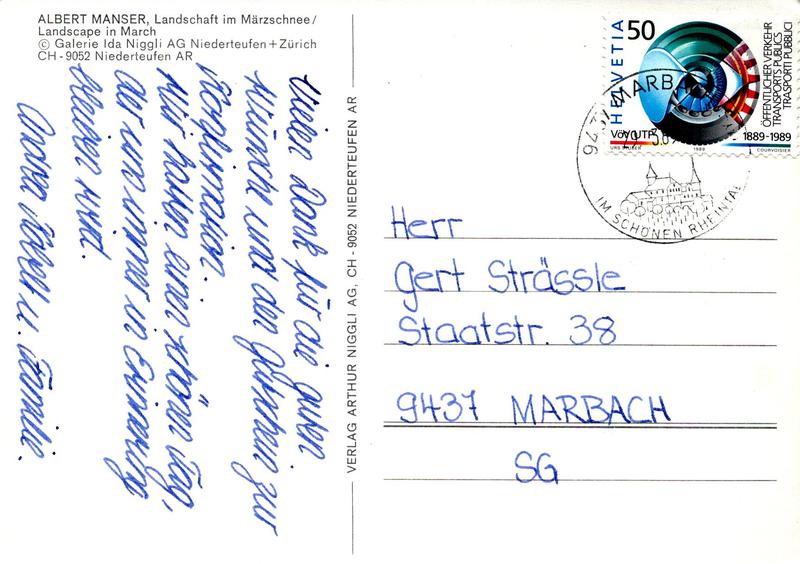 ALBERT MANSER, Landschaft im Märzschnee/
Landscape in March
© Galerie Ida Niggli AG Niederteufen+Zürich
CH-9052 Niederteufen AR
Vielen Dank für die guten
Wünsche und den Gutschein zur
Konfirmation.
Wir hatten einen schönen Tag,
der uns immer in Erinnerung
bleiben wird.
Andrea u. Familie.
VERLAG ARTHUR NIGGLI AG, CH - 9052 NIEDERTEUFEN AR
HELVETIA 50
ÖFFENTLICHER VERKEHR
TRANSPORTS PUBLICS
TRASPORTI PUBBLICI
1889-1989
1989
COURVOISIER
MARBACH
IM SCHÖNEN RHEINTAL
Herr
Gert Strässle
Staatstr. 38
9437 MARBACH
SG